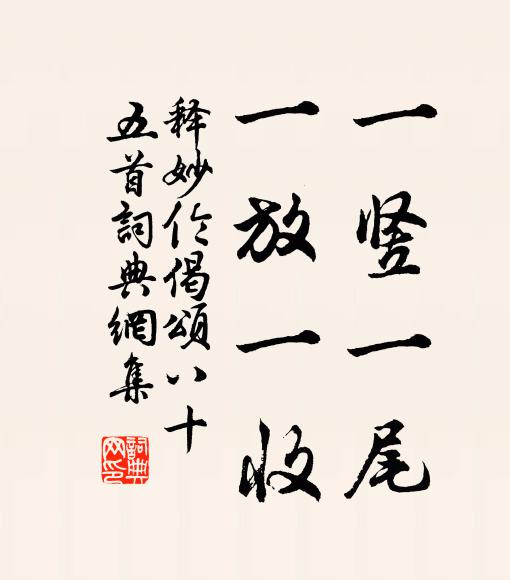 一竖一尾
一放一收
释妙伦偈颂八十
五首詞典網集
詞典网印